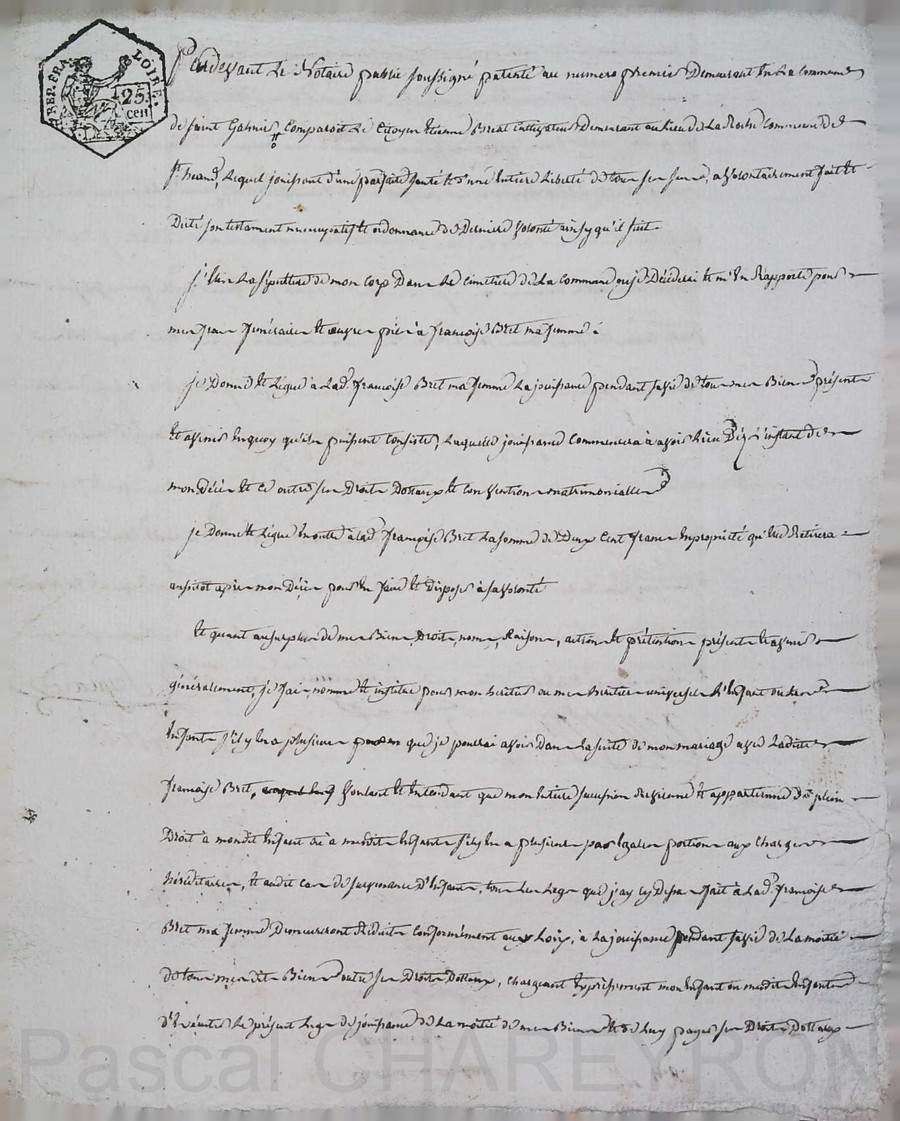 REP. FRA. LOIRE.
25
cen
Pardevant Le Notaire public soussigné patenté au numero premier Demeurant En La Commune
de saint Galmier Comparoit Le Citoyen Etienne Breat Cultivateur Demeurant au Lieu de La Roche Commune de
st heand, Lequel jouissant d'une parfaite santé et d'une Entiere Liberté de tous ses sens, a Volontairement fait Et
Dicté son testament nuncupatif Et ordonnance de Derniere Volonté ainsy qu'il suit
j'Elis La sépulture de mon Corps Dans Le cimetière de La Commune ou je Décéderai Et m'En Rapporte pour
mes frais funéraires Et œuvres pies à francoise Bret ma femme
je Donne Et Légue à Lad. francoise Bret ma femme La jouissance pendant sa Vie de tous mes Biens présents
Et avenir Enquoy qu'ils puissent Consister, Laquelle jouissance Commencera à avoir Lieu Dès L'instant de
mon Décès Et ce outre ses Droits Dottaux Et conventions matrimonialles
je Donne Et Légue En outre a Lad. francoise Bret La somme de Deux Cent francs En propriété qu'Elle Retirera
aussitot après mon Décès pour En faire Et Disposer à sa Volonté
Et quant au surplus de mes Biens, Droits, noms, Raisons, actions Et prétentions présents Et avenir
généralement, je fais nomme Et institue pour mon heritier ou mes heritiers universels L'Enfant ou Les
Enfants s'il y En a plusieurs que je pourrai avoir Dans La suite de mon mariage avec Laditte
francoise Bret, Voulant Et Entendant que mon Entière succession Revienne Et appartienne De plein
Droit à mondit Enfant où à mesdits Enfants s'il y En a plusieurs par Egales portions aux Charges
héréditaires, Et audit cas de survenance D'Enfants, tous Les Legs que j'ay cy Dessus fait à Lad. francoise
Bret ma femme Demeureront Réduits Conformément aux Loix, à La jouissance pendant sa Vie de La moitié
de tous mesdits Biens outre ses Droits Dottaux, chargeant Expressément mon Enfant ou mesdits Enfants
D'Exécuter Le présent Legs de jouissance de La moitié de mes Biens Et de Luy payer ses Droits Dottaux
Pascal CHAREYRON